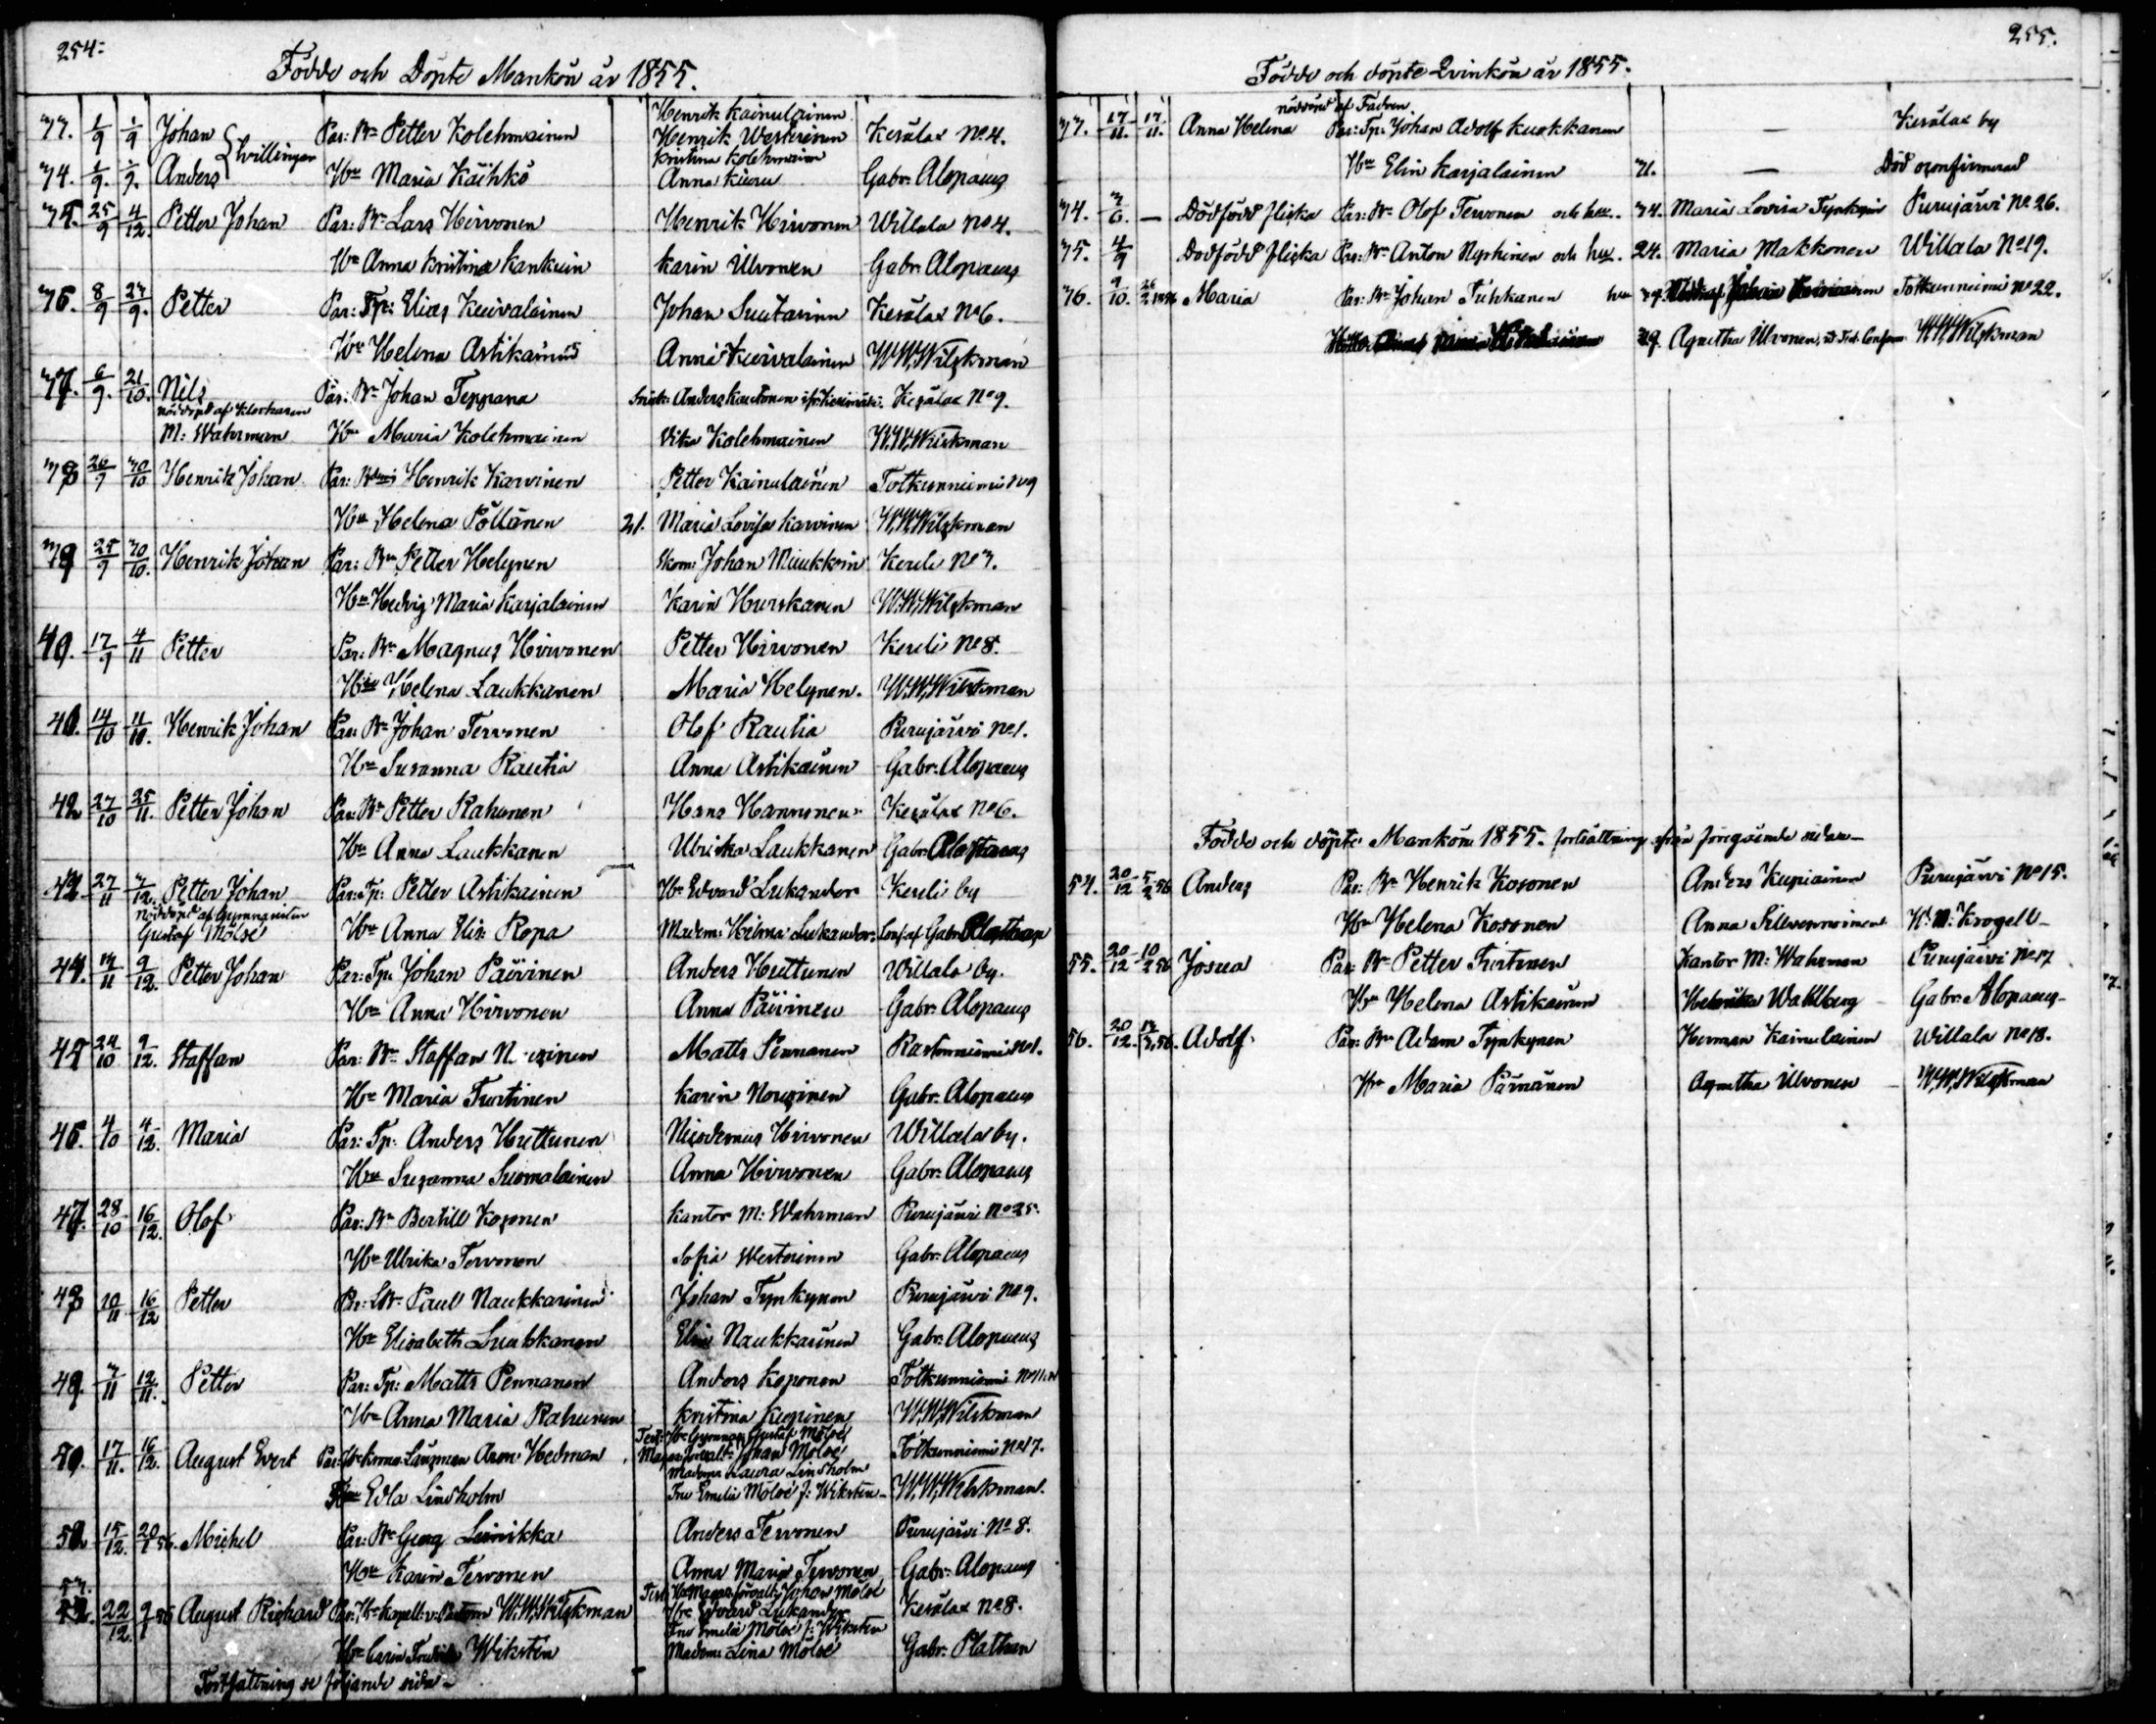 254:
Födde och Döpte Mankön år 1855.
33. 1/9 1/9 Johan Par: Bn Petter Kolehmainen Henrik Kainulainen Henrik Westerinen Kesälax No 4.
Tvillingar
34. 1/9. 1/9. Anders Hu Maria Käihkö Kristina Kolehmainen Anna Kiuru Gabr: Alopaeus
35. 25/9 4/12. Petter Johan Par: Bn Lars Hirvonen Henrik Hirvonen Willala No 4.
Hu Anna Kristina Kankuin Karin Ulvonen Gabr: Alopaeus
36. 8/9 23/9. Petter Par: Tp: Elias Keuvalainen Johan Suutarinen Kesälax No 6.
Hu Helena Astikainen Anna Kuivalainen W.W. Wilskman
37. 6/9. 21/10. Nils Par: Bn Johan Teppana Anders Kautonen Kesälax No 9.
nöddöpt af Klockaren
M: Wahrman Hu Maria Kolehmainen Vika Kolehmainen W.W. Wilskman
38 26/9 30/10 Henrik Johan Par: Henrik Karvinen Petter Kainulainen Totkunniemi No 9
Hu Helena Pöllänen 21. Maria Lovisa Karvinen W.W. Wilskman
39 25/9 30/10. Henrik Johan Par: Bn Petter Helynen Skom: Johan Muukkoin Kereli No 3.
Hu Hedvig Maria Karjalainen Karin Hurskanen W.W. Wilskman
40. 17/9 4/11 Petter Par: Bn Magnus Hirvonen Petter Hirvonen Kereli No 8.
Hu Helena Laukkanen Maria Helynen. W.W. Wilskman
41. 14/10 11/11. Henrik Johan Par: Bn Johan Tervonen Olof Rautia Purujärvi No 1.
Hu Susanna Rautia Anna Astikainen Gabr: Alopaeus
42 27/10 25/11. Petter Johan Par: Bn Petter Rahunen Hans Hannonen Kesälax No 6.
Hu Anna Laukkanen Ulrika Laukkanen Gabr: Alopaeus
43. 27/11 3/12. Petter Johan Par: Tp: Petter Astikainen Hr Edvard Lukander Kereli by
nöddöpt af Gymnasisten
Gustaf Molse Hu Anna Elis: Ropa Madem: Helma Lukander Conf. af Gabr: Plathan
44. 13/11 9/12. Petter Johan Par: Tp: Johan Päivinen Anders Huttunen Willala by.
Hu Anna Hirvonen Anna Päivinen Gabr: Alopaeus
45 24/10 9/12. Staffan Par: Bn Staffan Matts Pennanen Rastinniemi No 1.
Hu Maria Turtinen Karin Nousinen Gabr: Alopaeus
46. 4/10 4/12. Maria Par: Tp: Anders Huttunen Nicodemus Hirvonen Willala by.
Hu Susanna Suomalainen Anna Hirvonen Gabr: Alopaeus
47. 28/10 16/12. Olof Par: Bn Bertill Kosonen Kantor M: Wahrman Purujärvi No 25.
Hu Ulrika Tervonen Sofia Westerinen Gabr: Alopaeus
48 10/11 16/12 Petter Par: Paul Naukkarinen Johan Tynkynen Purujärvi No 9.
Hu Elisabeth Luukkanen Elin Naukkarinen Gabr: Alopaeus
49. 3/11 12/11. Petter Par: Tp: Matts Pennanen Anders Koponen Totkunniemi
Hu Anna Maria Rahunen Kristina Kupinen W.W. Wilskman
50. 17/11. 16/12. August Evert Par: Hr Krono Länsman Aron Hedman Test: Hr Gymnas: Gustaf Molse Johan Molse Totkunniemi No 17.
Hu Edla Lindholm Madem: Laura Lindholm Fru Emelie Molse f: Wiksten W.W. Wilskman.
52. 15/12. 20/1 56. Michel Par: Bn Georg Leinikka Anders Tervonen Purujärvi No 8.
Hu Karin Tervonen Anna Maria Tervonen Gabr: Alopaeus
53. 22/12. August Richard Par: Hr Kapell: v: Pastorn W.W. Wilskman Test: Johan Molse Hr Edvard Lukander Kesälax No 8.
Wiksten Fru Emelie Molse f: Wiksten Madem: Lina Molse Gabr: Plathan
Fortsättning se följande sida

255.
Födde och döpte Qvinkön år 1855.
nöddöpt af Fadren
33. 17/11. 17/11. Anna Helena Par: Tp: Johan Adolf Kuokkanen — Kesälax by
Hu Elin Karjalainen 31. — Död oconfirmerad
34. 3/6. — Dödfödd flicka Par: Bn Olof Tervonen och hu.. 34. Maria Lovisa Tynkynen Purujärvi No 26.
35. 4/9 Dödfödd flicka Par: Bn Anton Nyskinen och hu. 24. Maria Makkonen Willala No 19.
36. 9/10. 26/2 1856 Maria Par: Bn Johan Tuhkanen hu Totkunniemi No 22.
29. Agnetha Ulvonen W.W. Wilskman
Födde och döpte Mankön 1855. fortsättning från föregående sidan
54. 20/12 5/2 56 Anders Par: Bn Henrik Kosonen Anders Kupiainen Purujärvi No 15.
Hu Helena Kosonen Anna Silvennoinen K.M: Krogell
55. 20/12 10/2 56 Josua Par: Bn Petter Turtinen Kantor M: Wahrman Purujärvi No 17
Hu Helena Astikainen Wahlberg Gabr: Alopaeus
56. 20/12. 13/3 56. Adolf Par: Bn Adam Tynkynen Herman Kainulainen Willala No 18.
Hu Maria Pärnänen Agnetha Ulvonen W.W. Wilskman